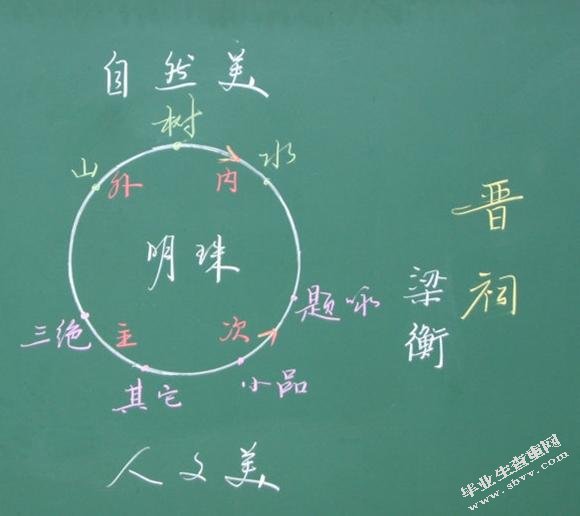 自然美
树
山
水
外
内
明珠
三绝
主
次
题咏
其它
小品
人文美
晋祠
梁衡
毕业生查重网
www.sbvv.com